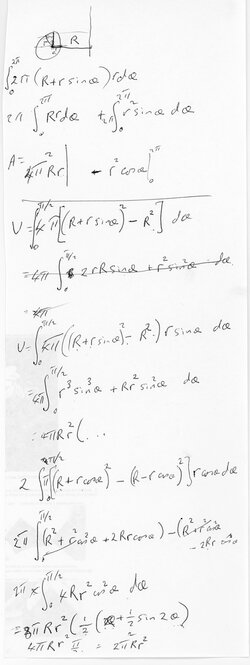 r R
∫₀^2π 2π(R+r sinθ) r dθ
2π ∫₀^2π Rr dθ + 2π ∫₀^2π r² sinθ dθ
A = 4π² Rr | - r² cosθ |₀^2π
V = ∫₀^π/2 4π[(R+r sinθ)² - R²] dθ
= 4π ∫₀^π/2 2rR sinθ + r² sin²θ dθ
= 4π
V = ∫₀^π/2 4π((R+r sinθ)² - R²) r sinθ dθ
= 4π ∫₀^π/2 r³ sin³θ + Rr² sin²θ dθ
= 4πRr² (...
2 ∫₀^π/2 π[(R+r cosθ)² - (R-r cosθ)²] r cosθ dθ
2π ∫₀^π/2 (R² + r² cos²θ + 2Rr cosθ) - (R² + r² cos²θ
- 2Rr cosθ)
2π × ∫₀^π/2 4Rr² cos²θ dθ
= 8πRr² (½ (θ + ½ sin 2θ)
4πRr² π/2 = 2π² Rr²